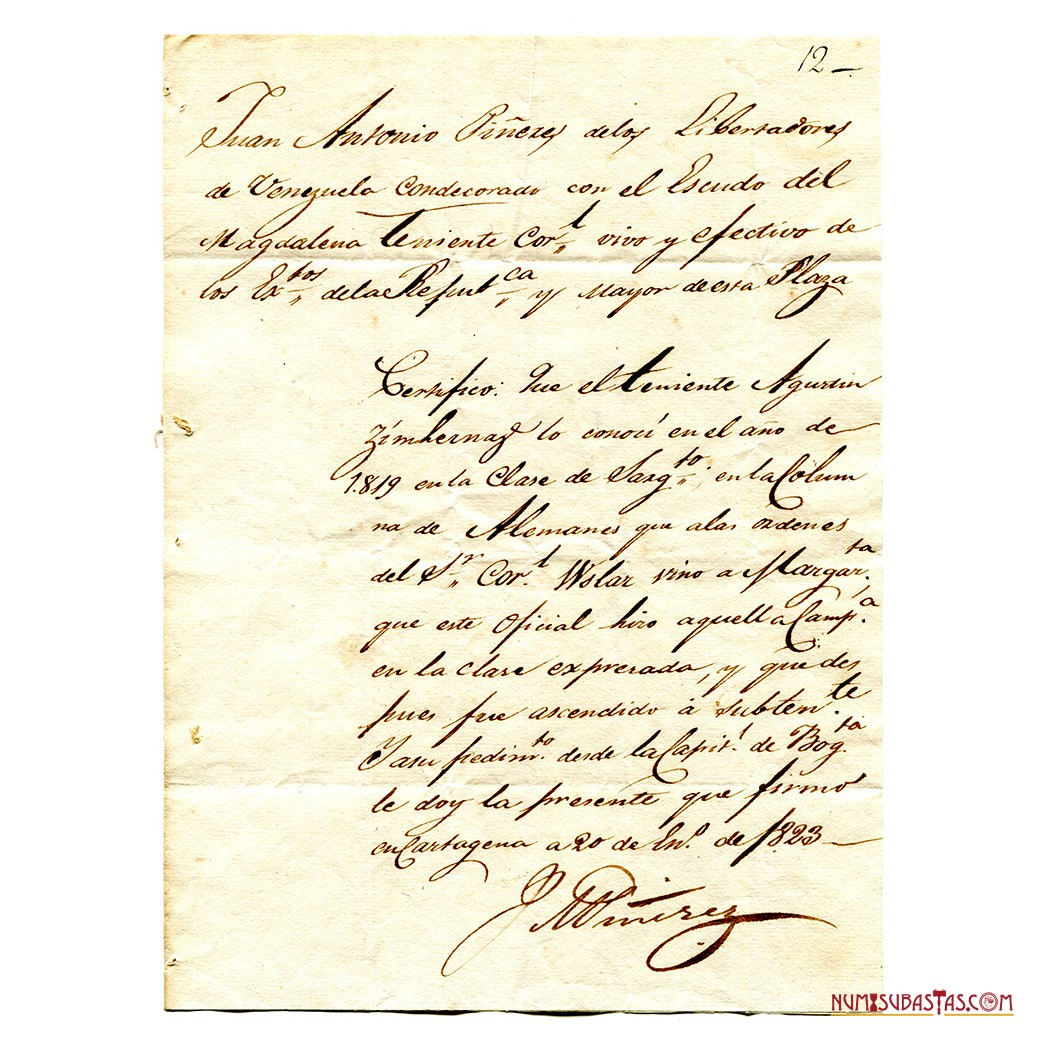 12 —
Juan Antonio Piñeres delos Libertadores
de Venezuela condecorado con el Escudo del
Magdalena Teniente Cor.l vivo y efectivo de
los Ex.tos dela Repub.ca y Mayor de esta Plaza
Certifico: Que el teniente Agustin
lo conocí en el año de
1819 en la Clase de Sarg.to; en la Colum
na de Alemanes que alas ordenes
del S.r Cor.l Uslar vino a Margar.ta,
que este Oficial hizo aquella Camp.a
en la clase expresada, y que des
pues fue ascendido á Subten.te
Y asu pedim.to desde la Capit.l de Bog.ta
le doy la presente que firmo
en Cartagena a 20 de En.o de 1823 —
J A Piñerez
NUMISUBASTAS.COM